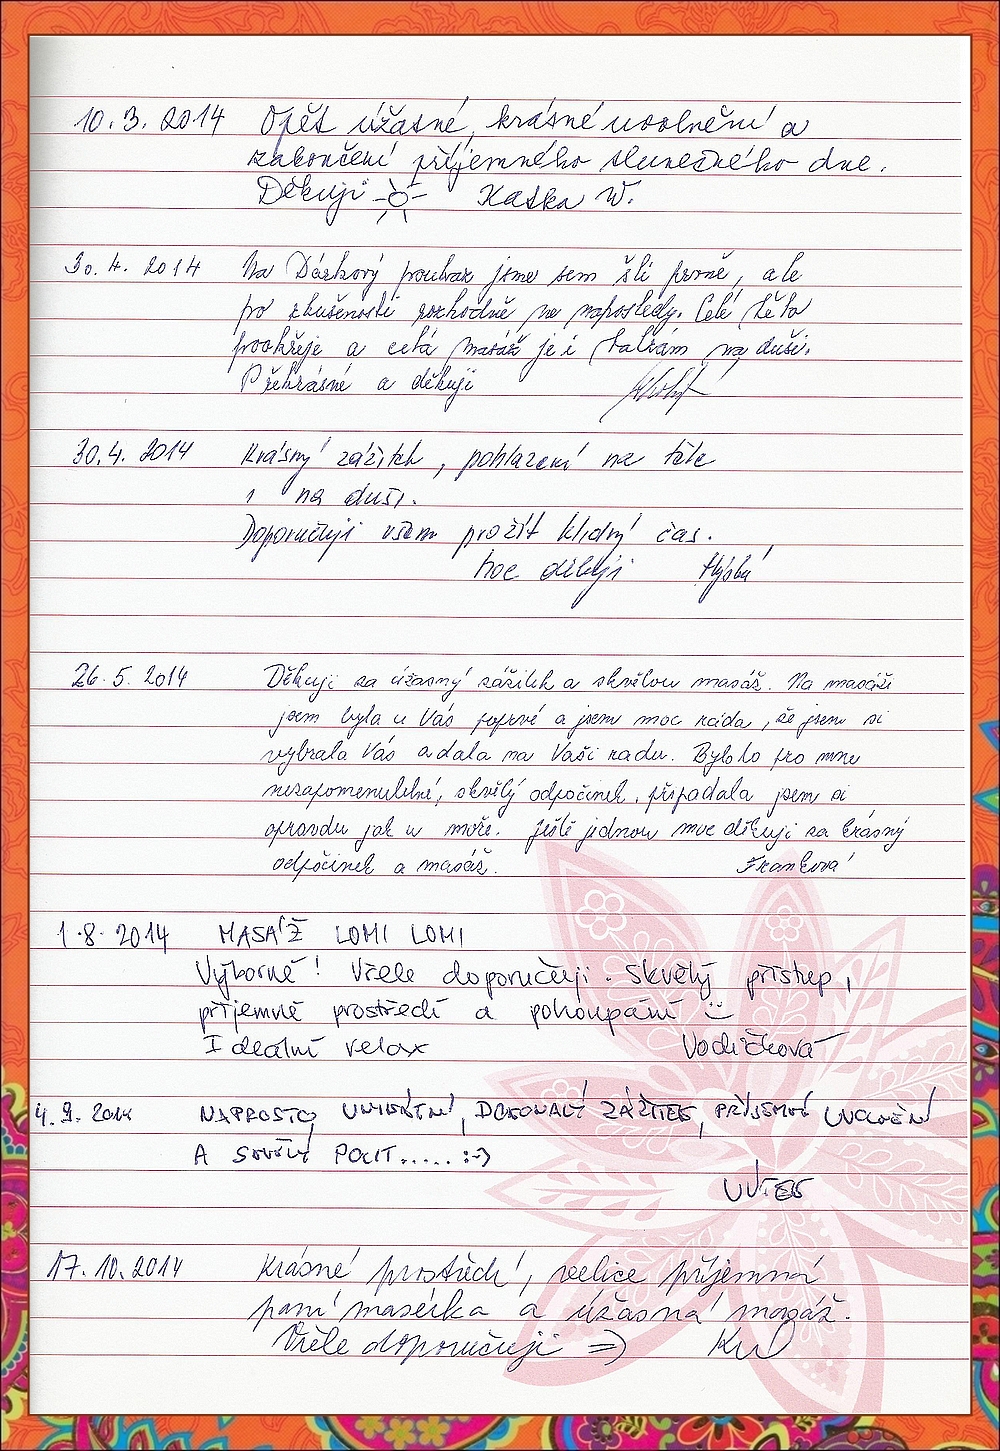 10.3.2014 Opět úžasné, krásné uvolnění a
zakončení příjemného slunečného dne.
Děkuji Katka W.
30.4.2014 Na Dárkový poukaz jsme sem šli prvně, ale
po zkušenosti rozhodně ne naposledy. Celé tělo
pookřeje a celá masáž je i balzám na duši.
Překrásné a děkuji
30.4.2014 Krásný zážitek, pohlazení na těle
i na duši.
Doporučuji všem prožít klidný čas.
moc děkuji
26.5.2014 Děkuji za úžasný zážitek a skvělou masáž. Na masáži
jsem byla u Vás poprvé a jsem moc ráda, že jsem si
vybrala Vás a dala na Vaši radu. Bylo to pro mne
nezapomenutelné, skvělý odpočinek, připadala jsem si
opravdu jak u moře. Ještě jednou moc děkuji za krásný
odpočinek a masáž. Franková
1.8.2014 MASÁŽ LOMI LOMI
Výborné! Vřele doporučuji. Skvělý přístup,
příjemné prostředí a pohoupání :)
Ideální relax Vodičková
4.9.2014 NAPROSTO UNIKÁTNÍ, DOKONALÝ ZÁŽITEK, PŘÍJEMNÉ UVOLNĚNÍ
A SKVĚLÝ POCIT..... :-)
17.10.2014 Krásné prostředí, velice příjemná
paní masérka a úžasná masáž.
Vřele doporučuji =)